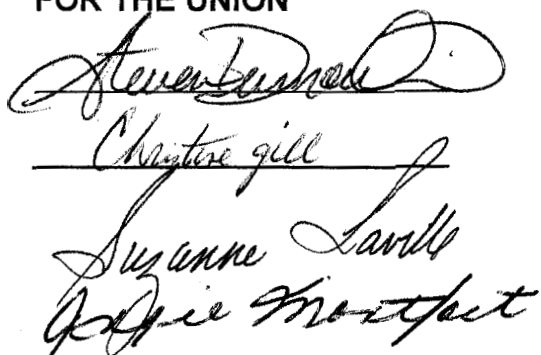 FOR THE UNION
Steven
Christine gill
Suzanne Laville
Montfort